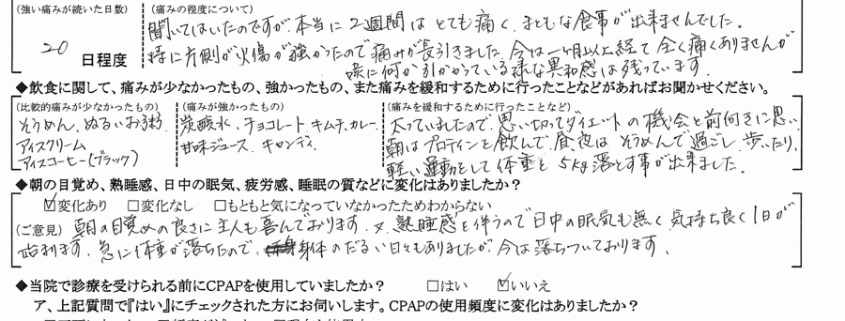 (強い痛みが続いた日数)
20 日程度
(痛みの程度について)
聞いてはいたのですが、本当に2週間はとても痛く、まともな食事が出来ませんでした。
特に片側が火傷が強かったので痛みが長引きました。今は一ヶ月以上経て全く痛くありませんが
喉に何か引かかっている様な異和感は残っています。
◆飲食に関して、痛みが少なかったもの、強かったもの、また痛みを緩和するために行ったことなどがあればお聞かせください。
(比較的痛みが少なかったもの)
そうめん、ぬるいお粥
アイスクリーム
アイスコーヒー(ブラック)
(痛みが強かったもの)
炭酸水、チョコレート、キムチ、カレー、
甘味ジュース キャンディ
(痛みを緩和するために行ったことなど)
太っていましたので、思い切ってダイエットの機会と前向きに思い、
朝はプロテインを飲んで、昼夜はそうめんで過ごし、歩いたり、
軽い運動をして体重を5kg落とす事が出来ました。
◆朝の目覚め、熟睡感、日中の眠気、疲労感、睡眠の質などに変化はありましたか?
☑変化あり □変化なし □もともと気になっていなかったためわからない
(ご意見) 朝の目覚めの良さに主人も喜んでおります。又、熟睡感を伴うので日中の眠気も無く気持ち良く1日が
始まります。急に体重が落ちたので、身体のだるい日々もありましたが、今は落ちついております。
◆当院で診療を受けられる前にCPAPを使用していましたか? □はい ☑いいえ
ア、上記質問で『はい』にチェックされた方にお伺いします。CPAPの使用頻度に変化はありましたか?